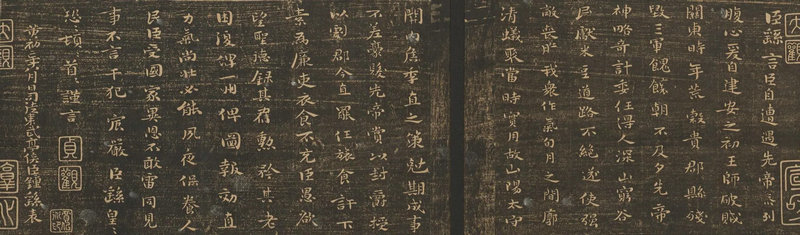 大觀
宣和
臣繇言臣自遭遇先帝忝列
腹心爰自建安之初王師破賊
關東時年荒穀貴郡縣殘
毀三軍餽饟朝不及夕先帝
神略奇計委任得人深山窮谷
民獻米豆道路不絕遂使強
敵喪膽我衆作氣旬月之間廓
清蟻聚當時實用故山陽太守
關內侯季直之策剋期成事
不差豪髮先帝賞以封爵授
以劇郡今直罷任旅食許下
素為廉吏衣食不充臣愚欲
望聖德錄其舊勳矜其老
困復俾一州俾圖報効直
力氣尚壯必能夙夜保養人
民臣受國家異恩不敢雷同見
事不言干犯宸嚴臣繇皇〻
恐頓首謹言
貞觀
黃初二年八月日司徒東武亭侯臣鍾繇表
大觀